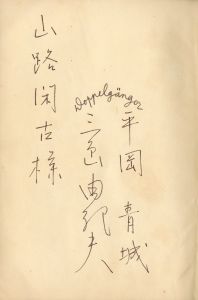 平岡青城
Doppelgänger
三島由紀夫
山路閑古様